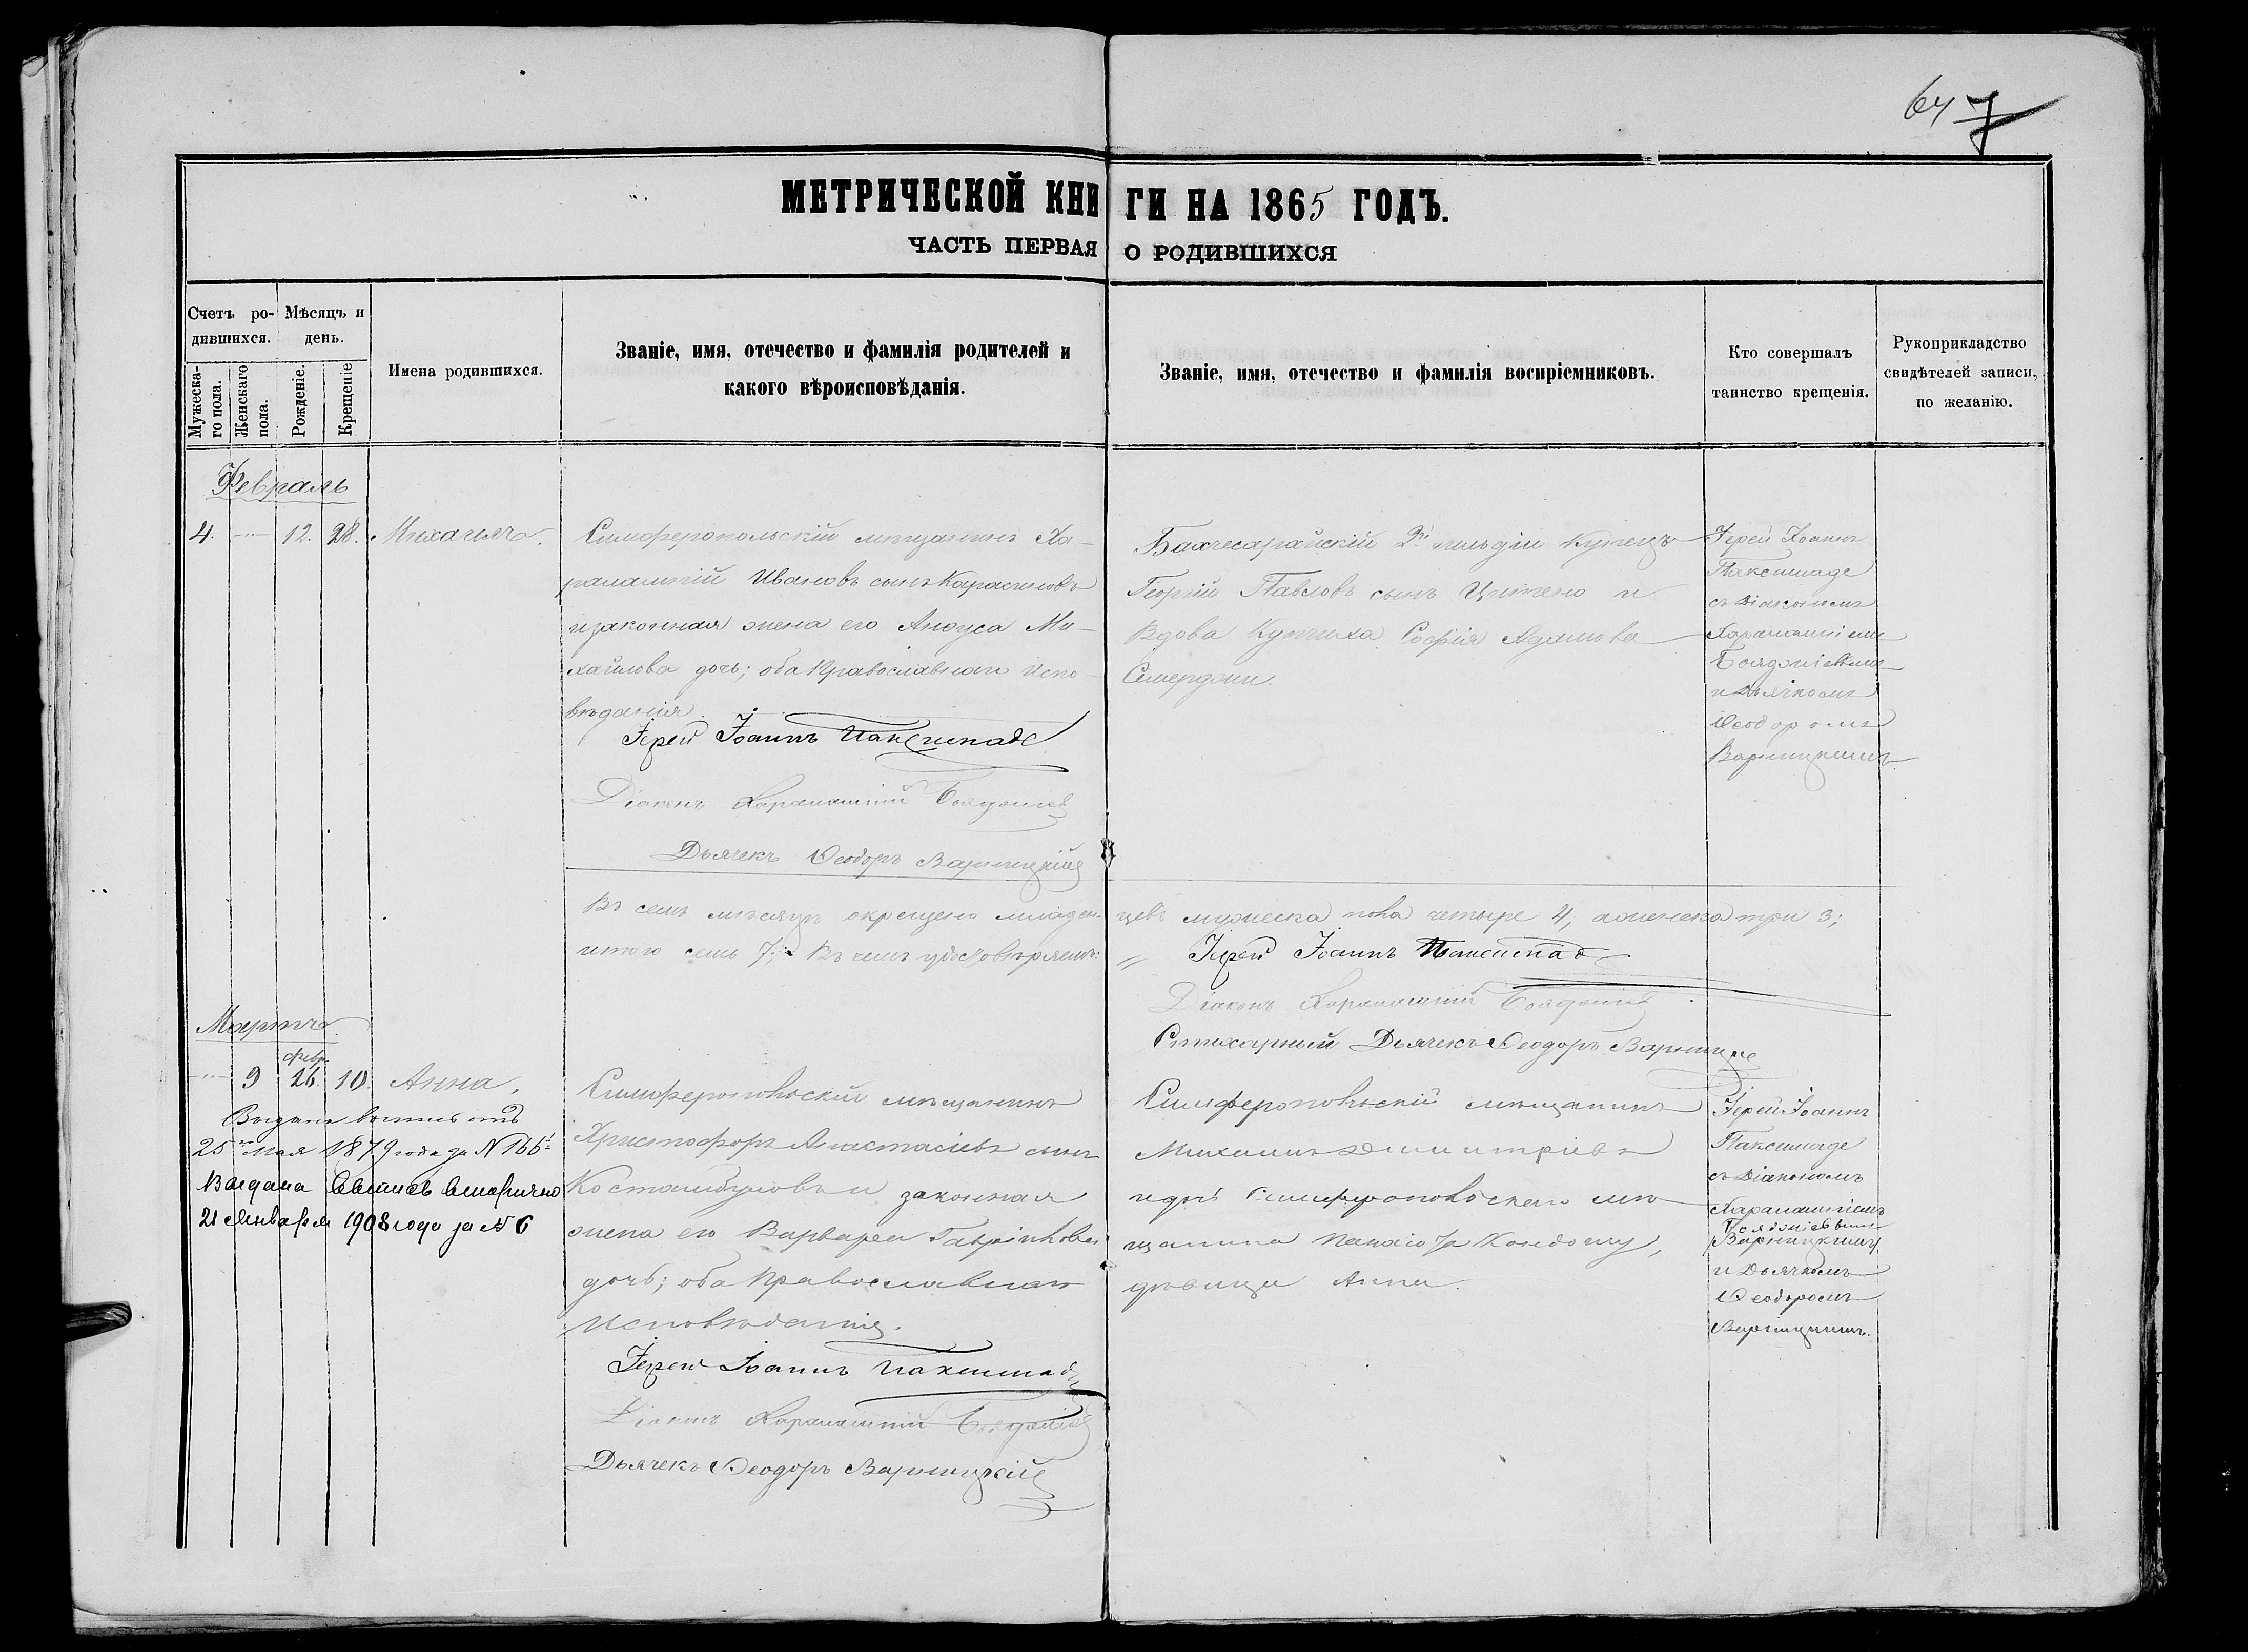 647
МЕТРИЧЕСКОЙ КНИГИ НА 1865 ГОДЪ.
ЧАСТЬ ПЕРВАЯ О РОДИВШИХСЯ
Счетъ ро-
дившихся.
Мужеска-
го пола.
Женскаго
пола.
Мѣсяцъ и
день.
Рожденіе.
Крещеніе
Имена родившихся.
Званіе, имя, отечество и фамилія родителей и
какого вѣроисповѣданія.
Званіе, имя, отечество и фамилія воспріемниковъ.
Кто совершалъ
таинство крещенія.
Рукоприкладство
свидѣтелей записи,
по желанію.
Февраль
4. 12. 28. Михаилъ.
Симферопольскій мѣщанинъ Ха-
ралампій Ивановъ сынъ
и законная жена его Ми-
хайлова дочь; оба Православнаго Испо-
вѣданія.
Іерей Іоаннъ
Діаконъ Харалампій
Дьячекъ Ѳеодоръ Варницкій
Бахчесарайскій 2й гильдіи Купецъ
Георгій Павловъ сынъ и
Вдова Купчиха Софія Адамова
Іерей Іоаннъ
Паксимаде
съ Діакономъ
Харалампіемъ
и Дьячкомъ
Ѳеодоромъ
Варницкимъ
Въ семъ мѣсяцѣ окрещено младен-
цевъ мужеска пола четыре 4, а женска три 3;
итого семь 7; Въ чемъ удостовѣряемъ:
Іерей Іоаннъ
Діаконъ Харалампій
Стихарный Дьячекъ Ѳеодоръ Варницкі
Мартъ
февр.
9 26. 10. Анна.
Выдана выпись отъ
25го мая 1879 года за № 166
Выдана Выпись вторично
21 Января 1908 года за № 6
Симферопольскій мѣщанинъ
Христофоръ Анастасіевъ сынъ
и законная
жена его Варвара
дочь; оба Православнаго
Исповѣданія.
Іерей Іоаннъ
Діаконъ Харалампій
Дьячекъ Ѳеодоръ Варницкій
Симферопольскій мѣщанинъ
Михаилъ Димитріевъ
и дочь Симферопольскаго мѣ-
щанина
дѣвица Анна.
Іерей Іоаннъ
Паксимаде
съ Діакономъ
Харалампіемъ
Варницкимъ
и Дьячкомъ
Ѳеодоромъ
Варницкимъ.